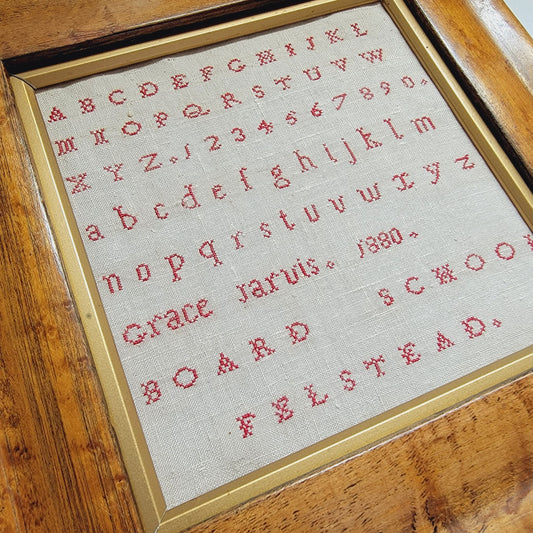 A B C D E F G H I J K L
M N O P Q R S T U V W
X Y Z. 1 2 3 4 5 6 7 8 9 0.
a b c d e f g h i j k l m
n o p q r s t u v w x y z
Grace Jarvis. 1880.
BOARD SCHOO
FELSTEAD.